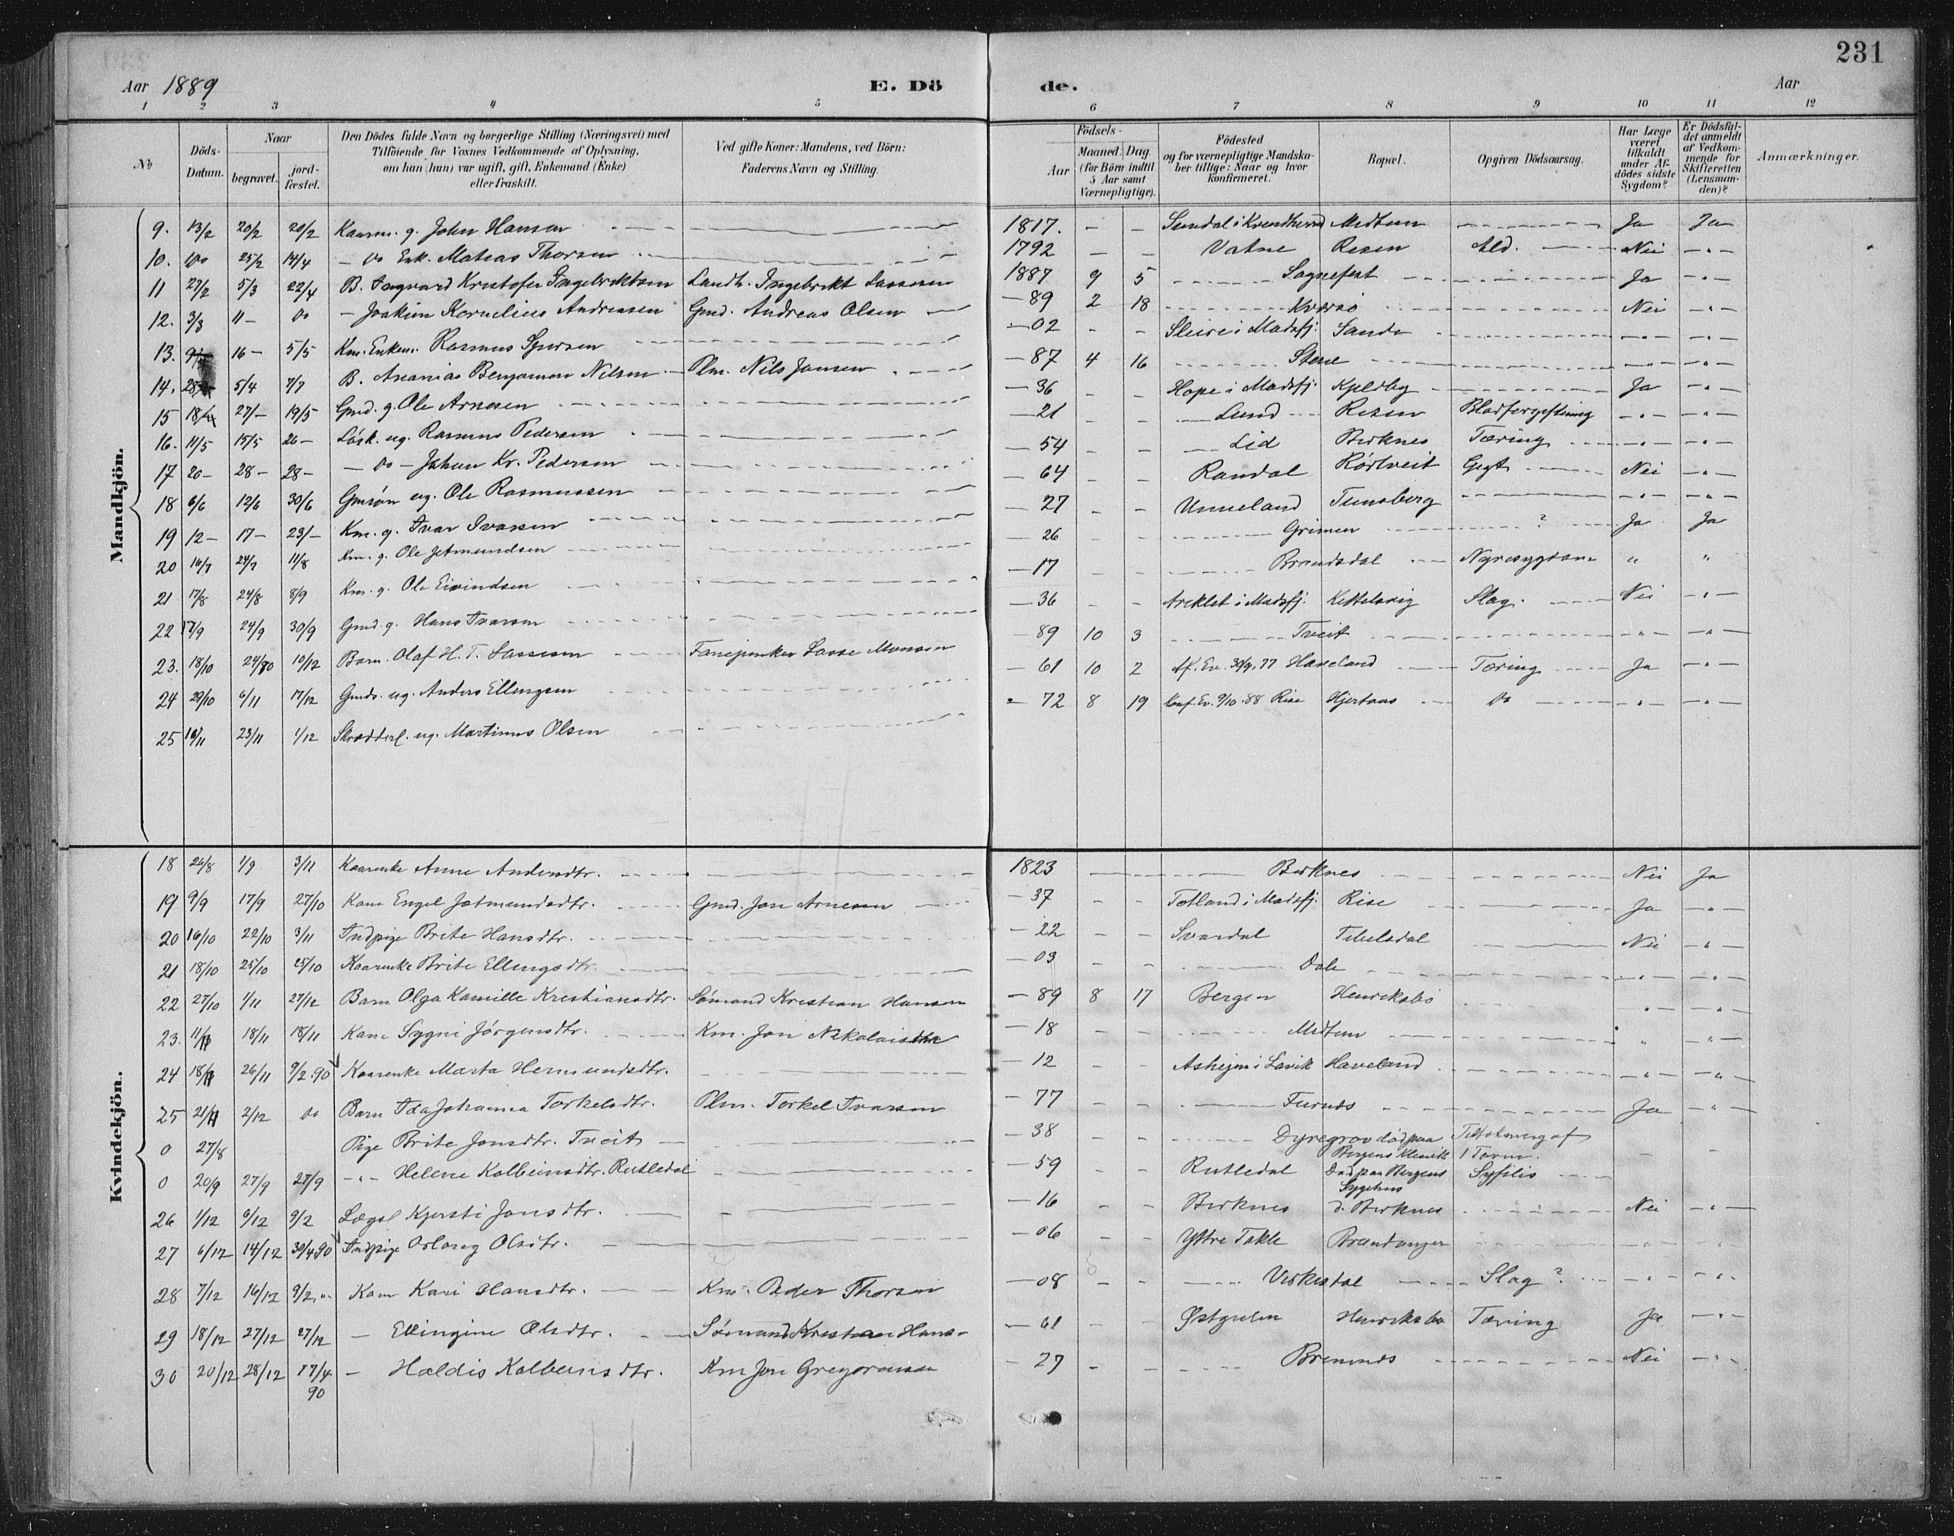 231
Aar 1889 E. Dö de. Aar
1 2 3 4 5 6 7 8 9 10 11 12
No
Döds-Datum.
Naar
begravet.
jordfæstet.
Den Dödes fulde Navn og borgerlige Stilling (Næringsvei) med
Tilföiende for Voxnes Vedkommende af Oplysning,
om han (hun) var ugift, gift, Enkemand (Enke)
eller fraskilt.
Ved gifte Koner: Mandens, ved Börn:
Faderens Navn og Stilling.
Födsels-
Aar
Maaned. Dag
(for Börn indtil
5 Aar samt
Værnepligtige).
Födested
og for værnepligtige Mandska-
ber tillige: Naar og hvor
konfirmeret.
Bopæl.
Opgiven Dödsaarsag.
Har Læge
været
tilkaldt
under Af-
dödes sidste
Sygdom?
Er Dödsfal-
det anmeldt
af Vedkom-
mende for
Skifteretten
(Lensman-
den)?
Anmærkninger.
Mandkjön.
9. 13/2 20/2 20/2 Kaarm. g. John Hansen 1817. - - Sundal i Kvindherred Midtun Ja Ja
10. do 25/2 14/4 - do Enk. Matias Thorsen 1792 - - Vatne Risen Ald. Nei - " -
11 27/2 5/3 22/4 B. Ingvard Kristofer Ingebriktsen Landh. Ingebrikt Lassesen 1887 9 5 Sognefest Ja - " -
12. 3/3 11 - do - Joakim Kornelius Andreassen Gmd. Andreas Olsen - 89 2 18 Kversø Nei - " -
13. 16 - 5/5 Km. Enkem. Rasmus - 02 - - Sleire i Madsfj. Sande - " - - " -
14. 5/4 7/7 B. Ananias Benjamin Nilsen Plm. Nils Jansen - 87 4 16 Stene - " - - " -
15 27 - 19/5 Gmd. g. Ole Arnesen - 36 - - Hope i Madsfj. Kjeldby Ja - " -
16. 11/5 15/5 26 - Løsk. ug. Rasmus Pedersen - 21 - - Lund Risen Blodforgiftning - " - - " -
17 20 - 28 - 28 - - do - Johan Kr. Pedersen - 54 - - Lid Birknes Tæring - " - - " -
18 6/6 12/6 30/6 Gmsøn ug. Ole Rasmussen - 64 - - Randal Rørtveit Gigt Nei - " -
19 12 - 17 - 23/- Km. g. Ivar Ivarsen - 27 - - Unneland Tunsberg - " - - " -
20 16/7 24/7 11/8 Km. g. Ole Jetmundsen - 26 - - Grimen ? Ja Ja
21 17/8 24/8 8/9 Km. g. Ole Eivindsen - 17 - - Brandsdal Nyresygdom " "
22 17/9 24/9 30/9 Gmd. g. Hans Ivarsen - 36 - - i Madsfj. Kittelsvig Slag. Nei - " -
23. 18/10 24/10 10/12 Barn. Olaf H. T. Lassesen Fanejunker Lasse Monsen - 89 10 3 Tveit - " - - " -
24 29/10 6/11 17/12 Gmds. ug. Anders Ellingsen - 61 10 2 77 Haveland Tæring Ja - " -
25 16/11 23/11 1/12 Skrædderl. ug. Martinus Olsen - 72 8 19 Konf. Ev. 9/10. 88 Rise Hjertaas do - " - - " -
Kvindekjön.
18 26/8 1/9 3/11 Kaarenke Anne Andersdtr. 1823 Birknes Nei Ja
19 9/9 17/9 27/10 Kone Engel Jetmundsdtr. Gmd. Jon Arnesen - 37 - - Totland i Madsfj. Rise Ja - " -
20 16/10 22/10 3/11 Indpige Brite Hansdtr. - 22 - - Svardal Tibelsdal Nei - " -
21 18/10 25/10 25/10 Kaarenke Brite Ellingsdtr. - 03 - - Dale - " - - " -
22 27/10 1/11 27/12 Barn Olga Kamille Kristiansdtr. Sømand Kristian Hansen - 89 8 17 Bergen Henriksbø - " - - " -
23. 11/11 18/11 18/11 Kone Sygni Jørgensdtr. Km. Jon Nikolaisen - 18 - - Midtun " - " -
24 18/11 26/11 9/2.90 Kaarenke Marta Hermundsdtr. - 12 - - Asheim i Lavik Haveland - " - - " -
25 21/11 2/12 do Barn Ida Johanna Torkelsdtr. Plm. Torkel Ivarsen - 77 - - Furnes Ja - " -
0 27/8 Pige Brite Jonsdtr. Tveit - 38 - - Dyregrov død paa Bergens Tilstopning af
0 20/9 27/9 27/9 - " - Helene Kolbeinsdtr. Rutledal - 59 - - Rutledal Død paa Bergens Sygehus Syfilis
26 1/12 6/12 9/2 Lægsl Kjersti Jonsdtr. - 16 - - Birknes d. Birknes Nei - " -
27 6/12 14/12 30/4 90 Indpige Orlaug Olsdtr. - 06 - - Yttre Takle Brandanger - " - - " -
28 7/12 16/12 9/2 " Kone Kari Hansdtr. Km. Peder Thorsen - 08 - - Virkesdal Slag ? - " - - " -
29 18/12 27/12 27/12 - Ellingine Olsdtr. Sømand Kristian Hansen - 61 - - Østgulen Henriksbø Tæring Ja - " -
30 20/12 28/12 17/4 90 - Haldis Kolbeinsdtr. Km Jon Gregoriussen - 27 - - Bremnes Nei - " -